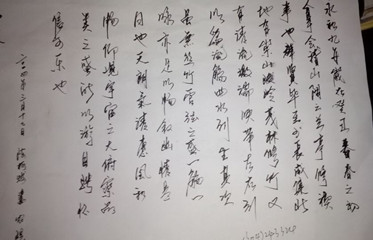 永和九年歲在癸丑暮春之初
會于會稽山陰之蘭亭修禊
事也群賢畢至少長咸集此
地有崇山峻嶺茂林修竹又
有清流激湍映帶左右引
以為流觴曲水列坐其次
雖無絲竹管弦之盛一觴一
詠亦足以暢敘幽情是
日也天朗氣清惠風和
暢仰觀宇宙之大俯察品
類之盛所以游目騁懷
信可樂也
年二月十七日